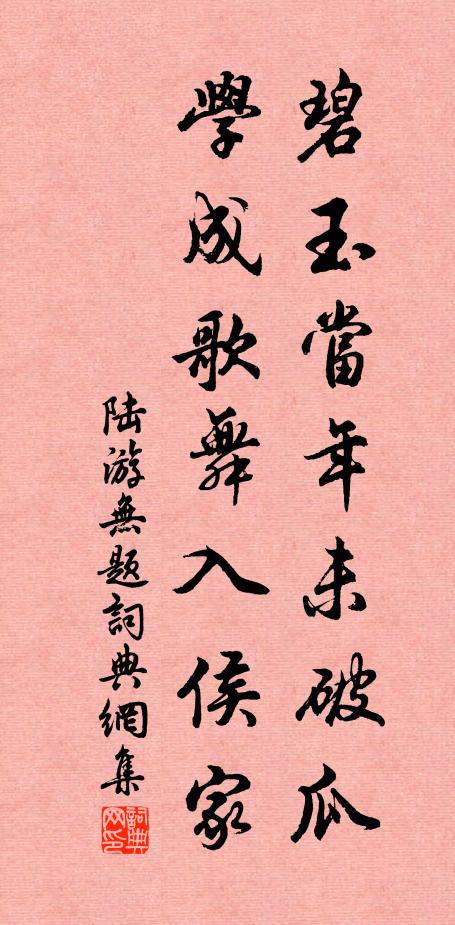 碧玉當年未破瓜
學成歌舞入侯家
陆游無题詞典網集
詞典网印